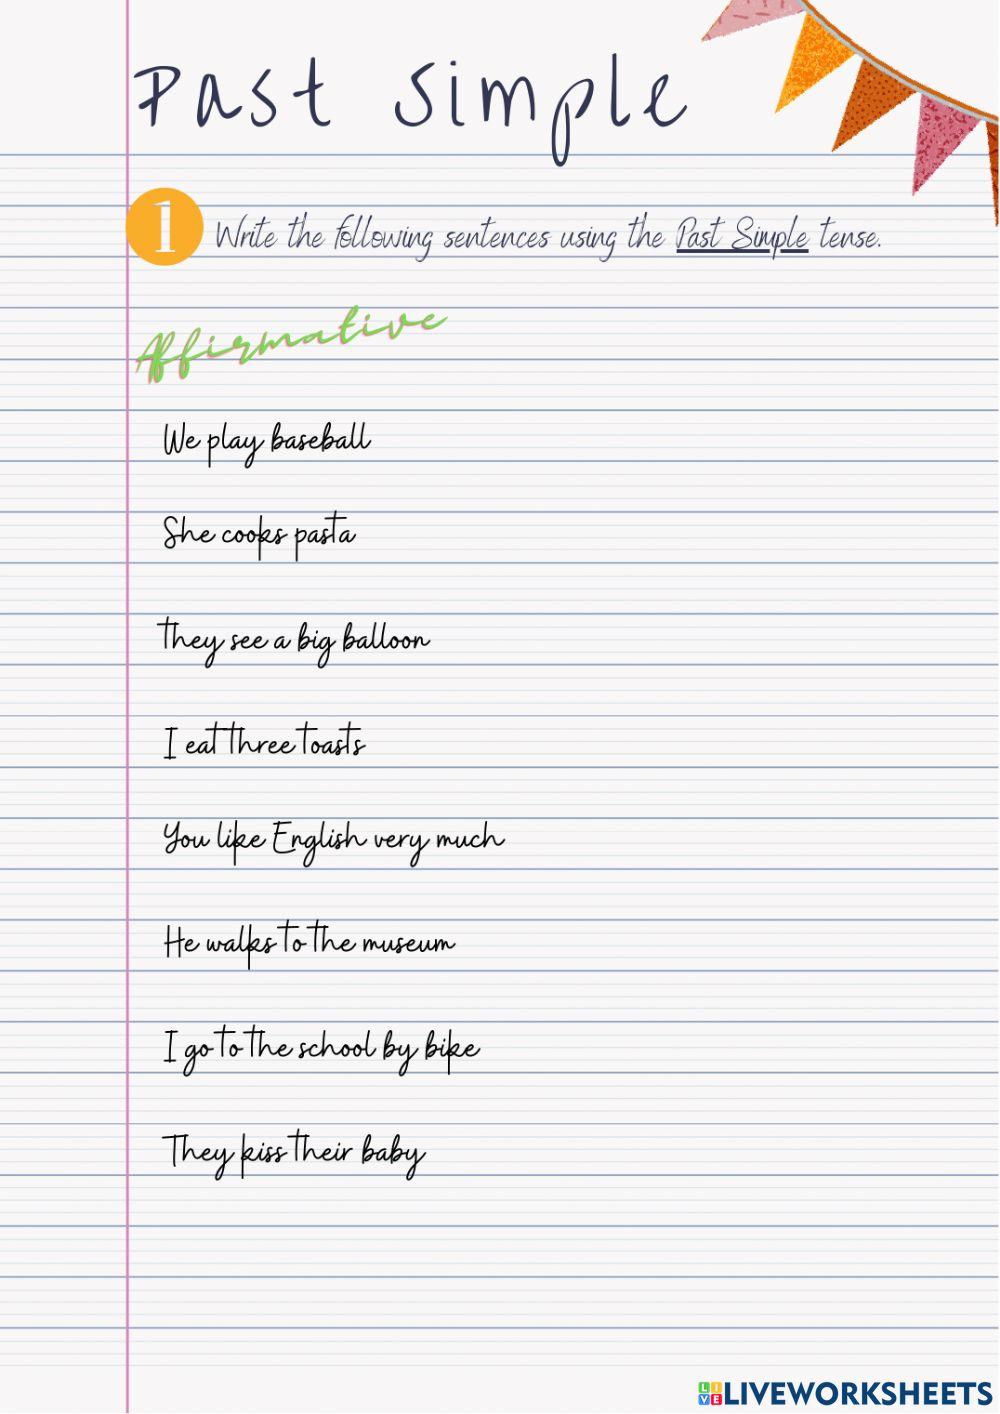 Past Simple
1 Write the following sentences using the Past Simple tense.
Affirmative
We play baseball
She cooks pasta
they see a big balloon
I eat three toasts
You like English very much
He walks to the museum
I go to the school by bike
They kiss their baby
LIVE LIVEWORKSHEETS